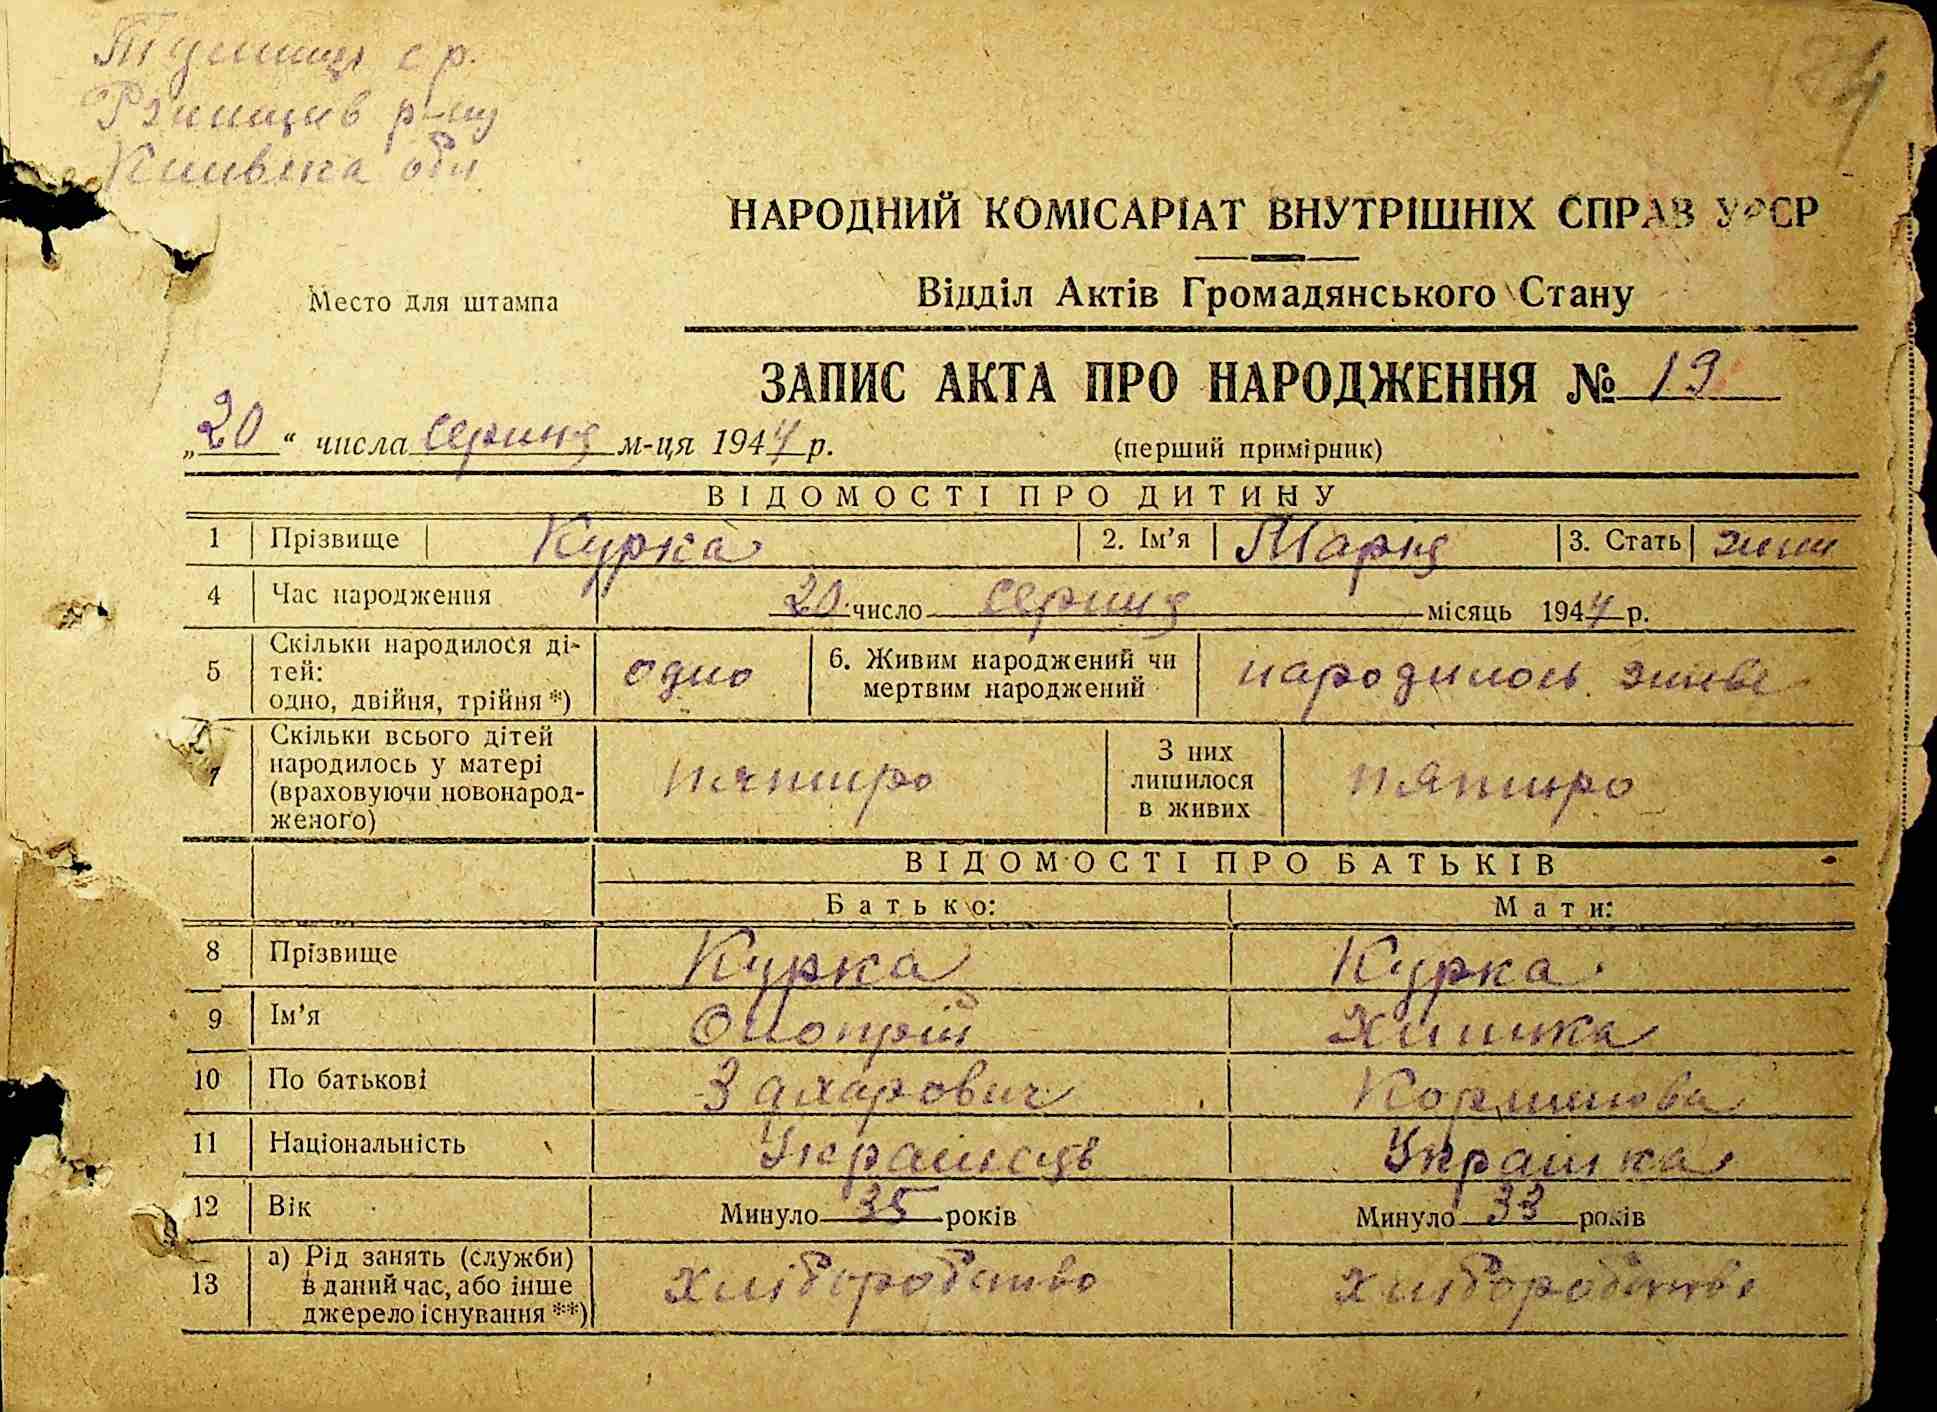 с р.
р-ну
Київська обл.
НАРОДНИЙ КОМІСАРІАТ ВНУТРІШНІХ СПРАВ УРСР
Відділ Актів Громадянського Стану
Место для штампа
ЗАПИС АКТА ПРО НАРОДЖЕННЯ № 19
„20“ числа серпня м-ця 1944 р.
(перший примірник)
ВІДОМОСТІ ПРО ДИТИНУ
1 Прізвище Курка 2. Ім’я Марія 3. Стать жін
4 Час народження 20 число серпня місяць 1944 р.
5 Скільки народилося ді-
тей:
одно, двійня, трійня *) одно 6. Живим народжений чи
мертвим народжений народилось живе
7 Скільки всього дітей
народилось у матері
(враховуючи новонарод-
женого) пятиро З них
лишилося
в живих пятиро
ВІДОМОСТІ ПРО БАТЬКІВ
Батько: Мати:
8 Прізвище Курка Курка
9 Ім’я Онопрій
10 По батькові Захарович
11 Національність Українець Українка
12 Вік Минуло 35 років Минуло 33 років
13 а) Рід занять (служби)
в даний час, або інше
джерело існування **) Хліборобство Хліборобство